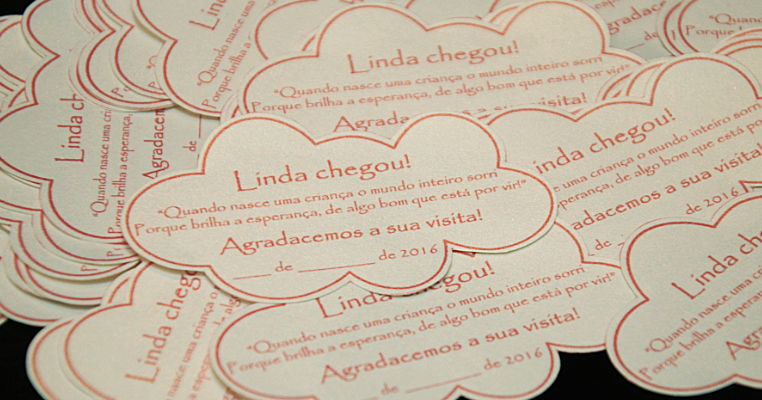 Linda chegou!
"Quando nasce uma criança o mundo inteiro sorri
Porque brilha a esperança, de algo bom que está por vir!"
Agradacemos a sua visita!
____ de ________ de 2016
Linda chegou!
"Quando nasce uma criança o mundo inteiro sorri
Porque brilha a esperança, de algo bom que está por vir!"
Agrada
Linda ch
"Quando nasce uma cri
Porque brilha a esperança,
Agradacem
de
inda chegou!
uma criança o mundo inteiro sorri
perança, de algo bom que está por vir!"
adacemos a sua visita!
de ____ de 2016
Linda chegou!
"Quando nasce uma criança o mundo inteiro sorri
Porque brilha a esperança, de algo bom que está por vir!"
Agradacemos a sua visita!
de ________ de 2016
Linda chego
"Quando nasce uma criança o
Linda cheg
"Quando nasce uma
Porque brilha a
Agradace
"Quando
Porque